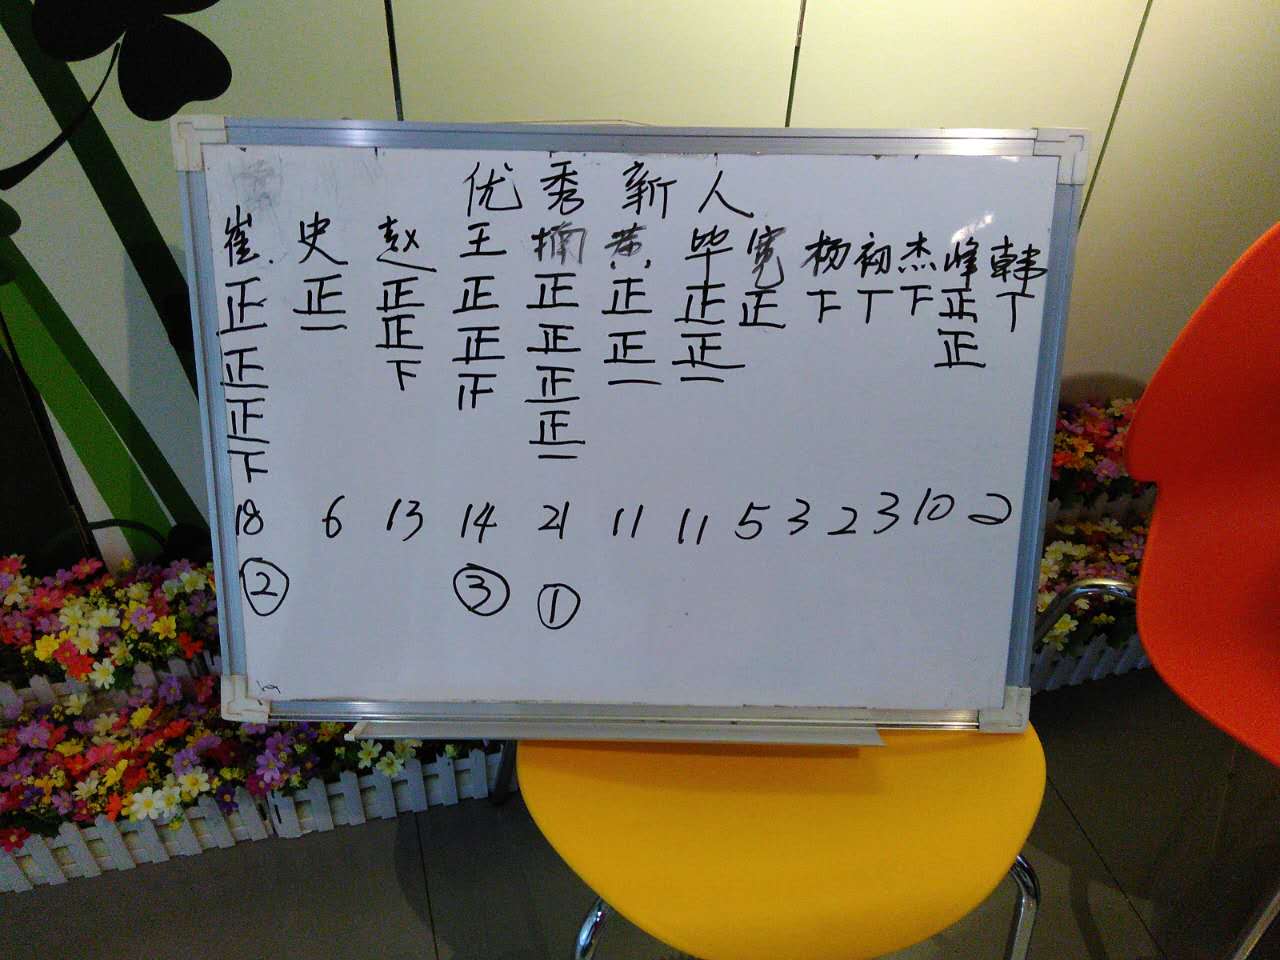 优秀新人
崔 史 赵 王 楠 黄 毕 宽 杨 初 杰 峰 韩
正 正 正 正 正 正 正 正 下 丅 下 正 丅
正 一 正 正 正 正 正 正
正 下 正 正 一 一
下 正
一
18 6 13 14 21 11 11 5 3 2 3 10 2
② ③ ①